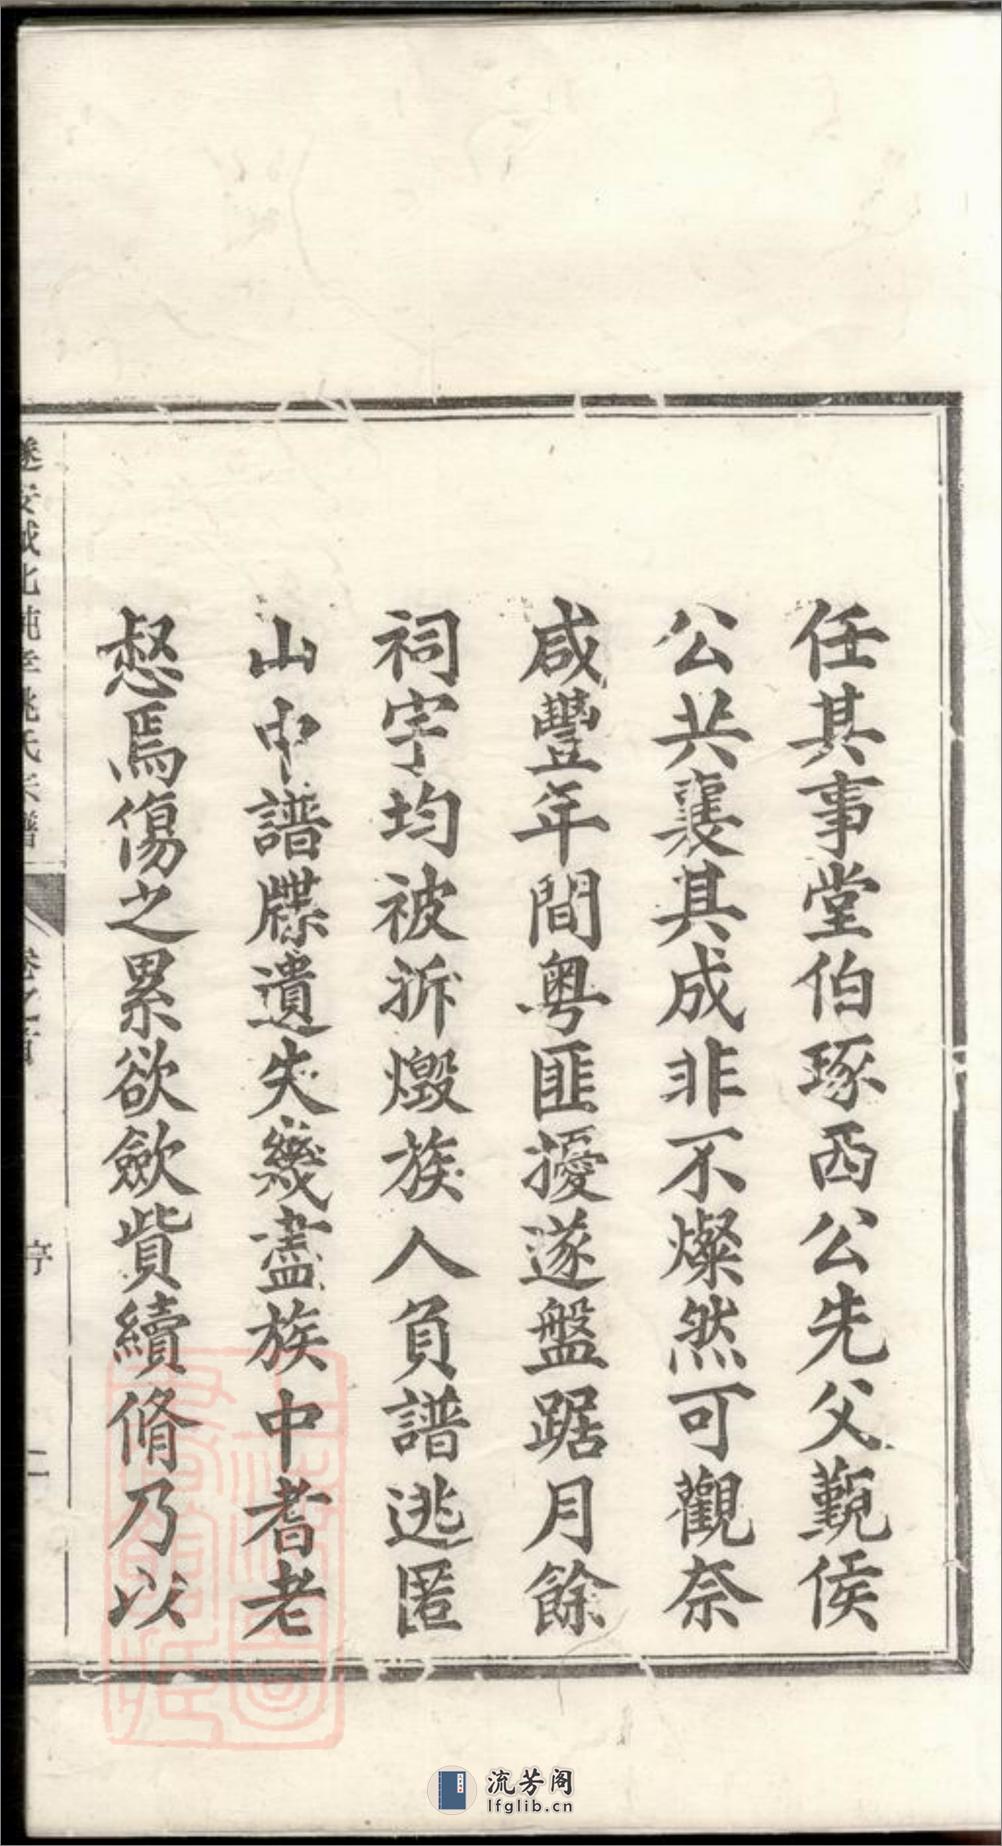 任其事堂伯琢西公先父覲侯
公共襄其成非不燦然可觀奈
咸豐年間粤匪擾遂盤踞月餘
祠宇均被拆燬族人負譜逃匿
山中譜牒遺失幾盡族中耆老
惄焉傷之累欲歛貲續脩乃以
遂安城北純孝姚氏宗譜
卷之首
序
二
流芳阁
lfglib.cn